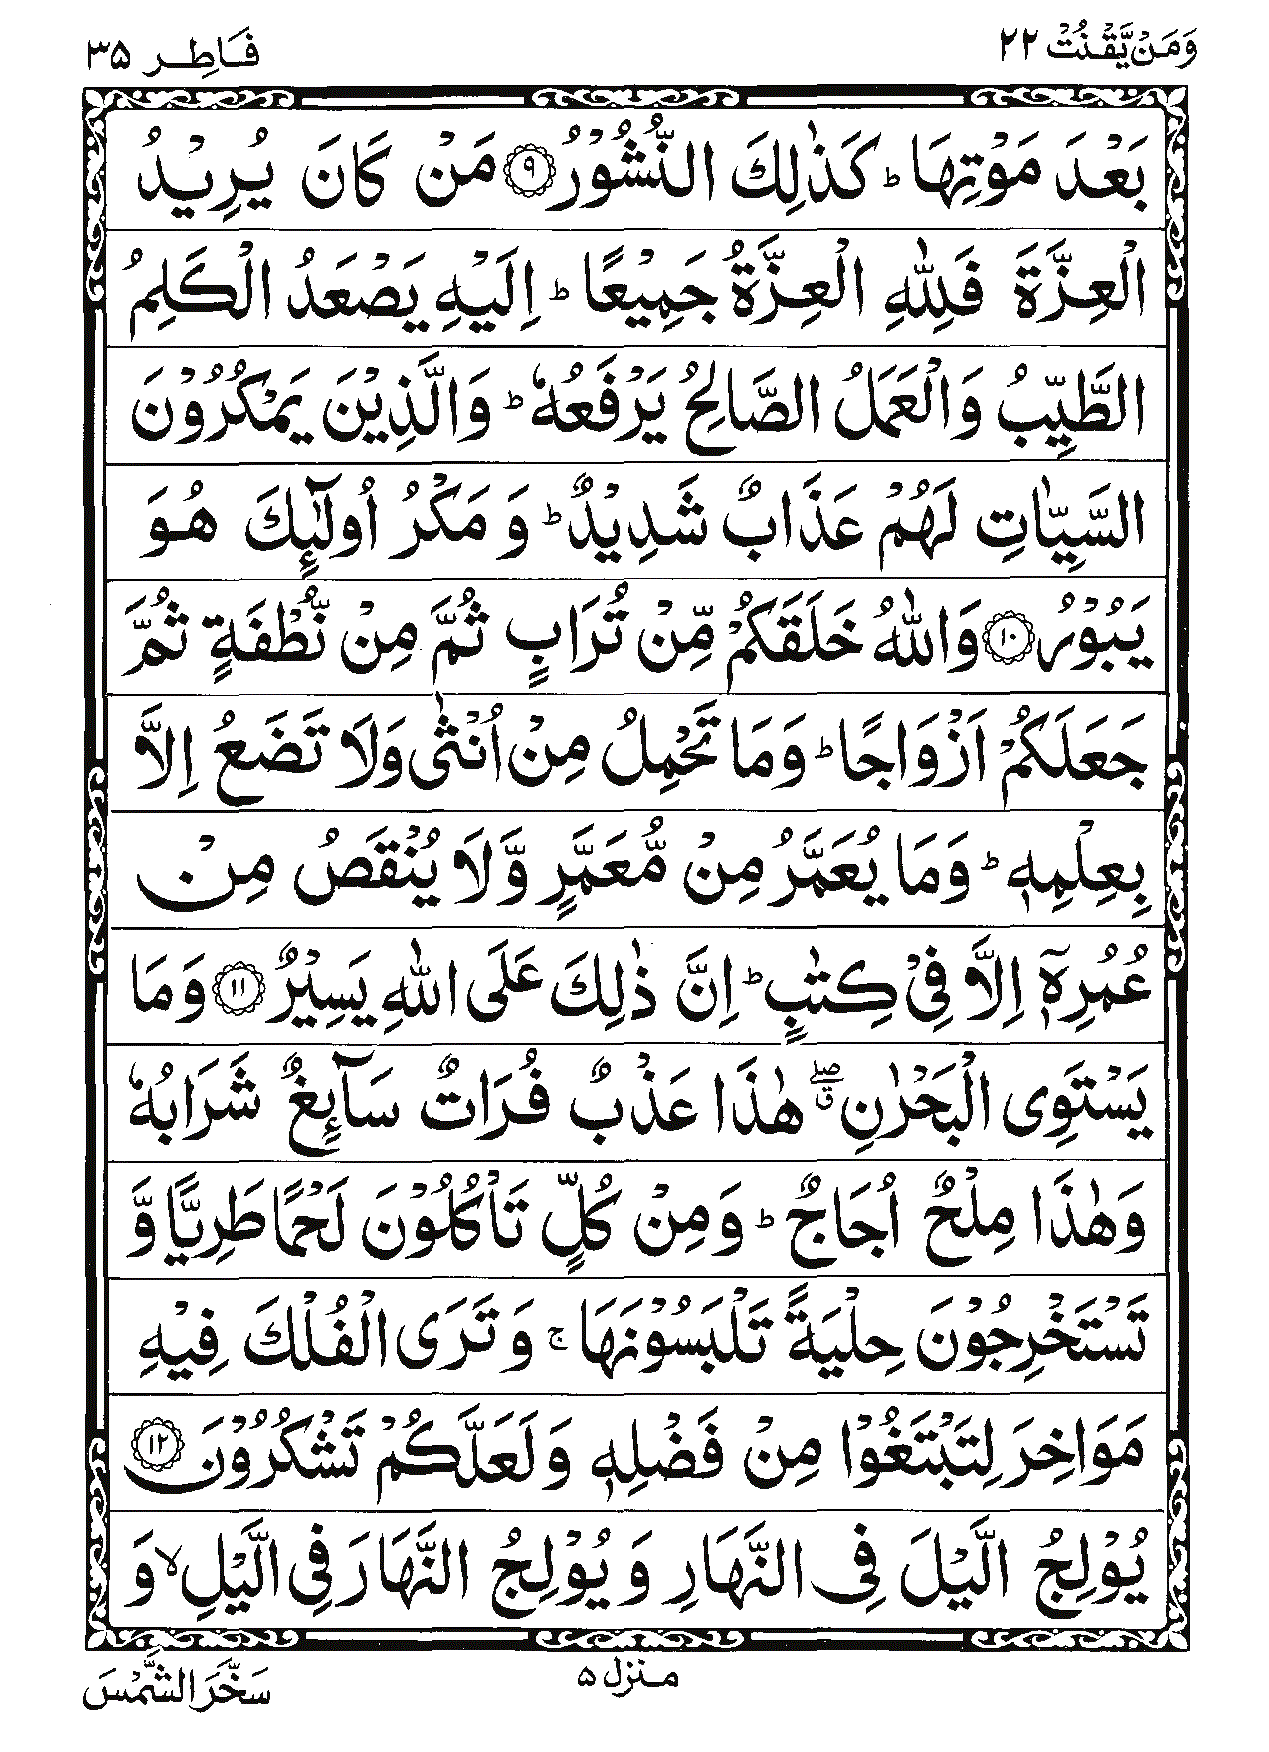 وَمَنْ يَّقْنُتْ ٢٢
فَاطِر ٣٥
بَعْدَ مَوْتِهَا ؕ كَذٰلِكَ النُّشُوْرُ ۹ مَنْ كَانَ يُرِيْدُ
الْعِزَّةَ فَلِلّٰهِ الْعِزَّةُ جَمِيْعًا ؕ اِلَيْهِ يَصْعَدُ الْكَلِمُ
الطَّيِّبُ وَالْعَمَلُ الصَّالِحُ يَرْفَعُهٗ ؕ وَالَّذِيْنَ يَمْكُرُوْنَ
السَّيِّاٰتِ لَهُمْ عَذَابٌ شَدِيْدٌ ؕ وَ مَكْرُ اُولٰٓئِكَ هُوَ
يَبُوْرُ ۱۰ وَاللّٰهُ خَلَقَكُمْ مِّنْ تُرَابٍ ثُمَّ مِنْ نُّطْفَةٍ ثُمَّ
جَعَلَكُمْ اَزْوَاجًا ؕ وَمَا تَحْمِلُ مِنْ اُنْثٰى وَلَا تَضَعُ اِلَّا
بِعِلْمِهٖ ؕ وَمَا يُعَمَّرُ مِنْ مُّعَمَّرٍ وَّلَا يُنْقَصُ مِنْ
عُمُرِهٖٓ اِلَّا فِيْ كِتٰبٍ ؕ اِنَّ ذٰلِكَ عَلَى اللّٰهِ يَسِيْرٌ ۱۱ وَمَا
يَسْتَوِى الْبَحْرٰنِ ۖق هٰذَا عَذْبٌ فُرَاتٌ سَآئِغٌ شَرَابُهٗ
وَهٰذَا مِلْحٌ اُجَاجٌ ؕ وَمِنْ كُلٍّ تَاْكُلُوْنَ لَحْمًا طَرِيًّا وَّ
تَسْتَخْرِجُوْنَ حِلْيَةً تَلْبَسُوْنَهَا ۚ وَ تَرَى الْفُلْكَ فِيْهِ
مَوَاخِرَ لِتَبْتَغُوْا مِنْ فَضْلِهٖ وَلَعَلَّكُمْ تَشْكُرُوْنَ ۱۲
يُوْلِجُ الَّيْلَ فِى النَّهَارِ وَ يُوْلِجُ النَّهَارَ فِى الَّيْلِ ۙ وَ
منزل ۵
سَخَّرَ الشَّمْسَ